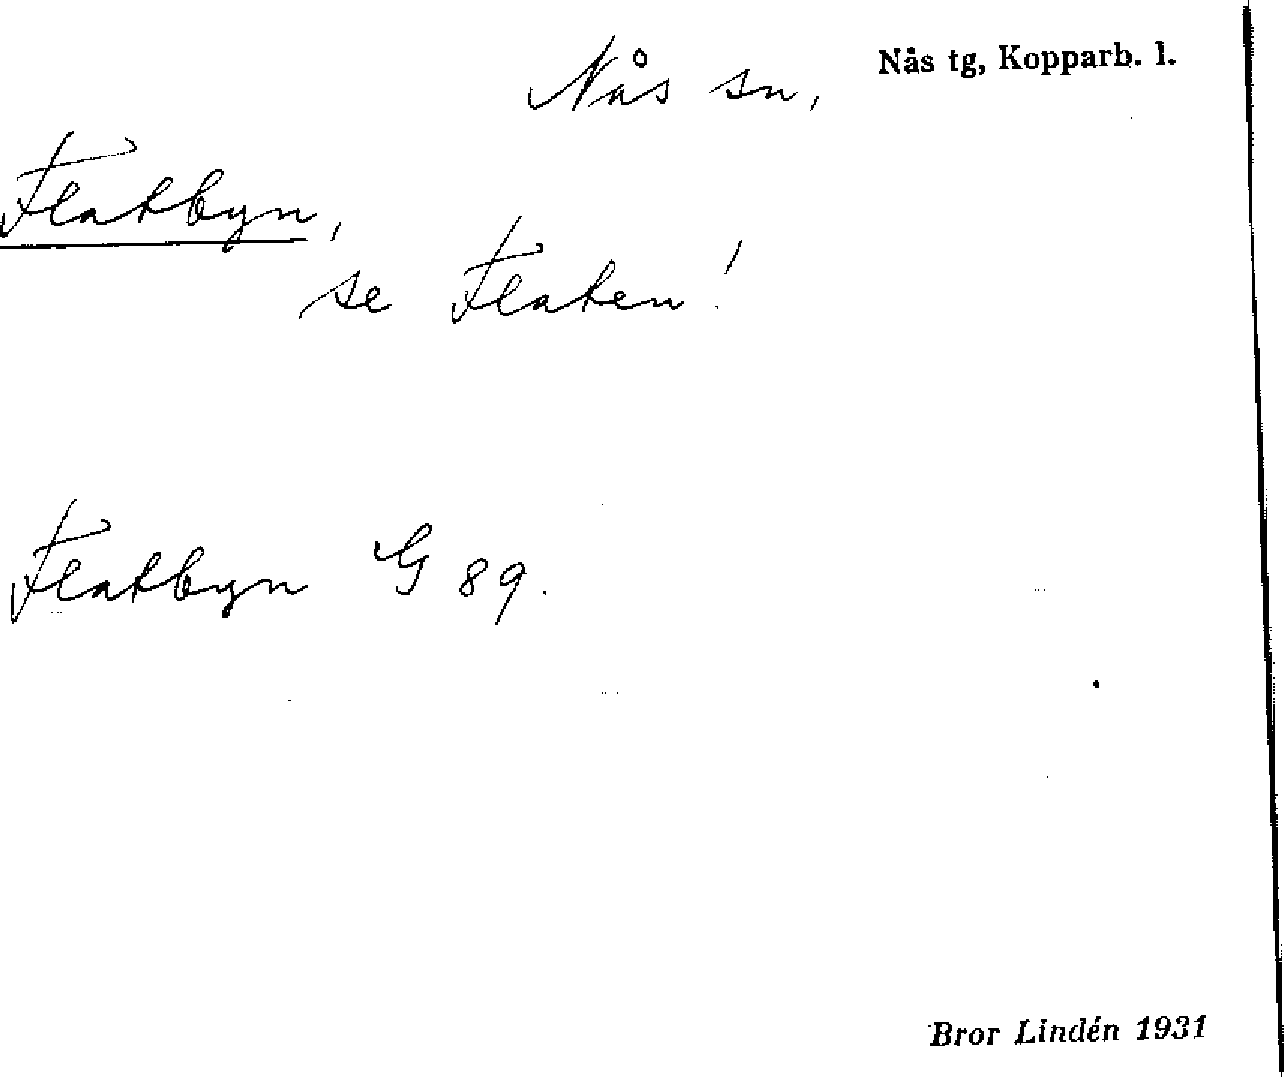 Nås sn, Nås tg, Kopparb. l.
Flatbyn,
se Flaten!
Flatbyn G 89.
Bror Lindén 1931